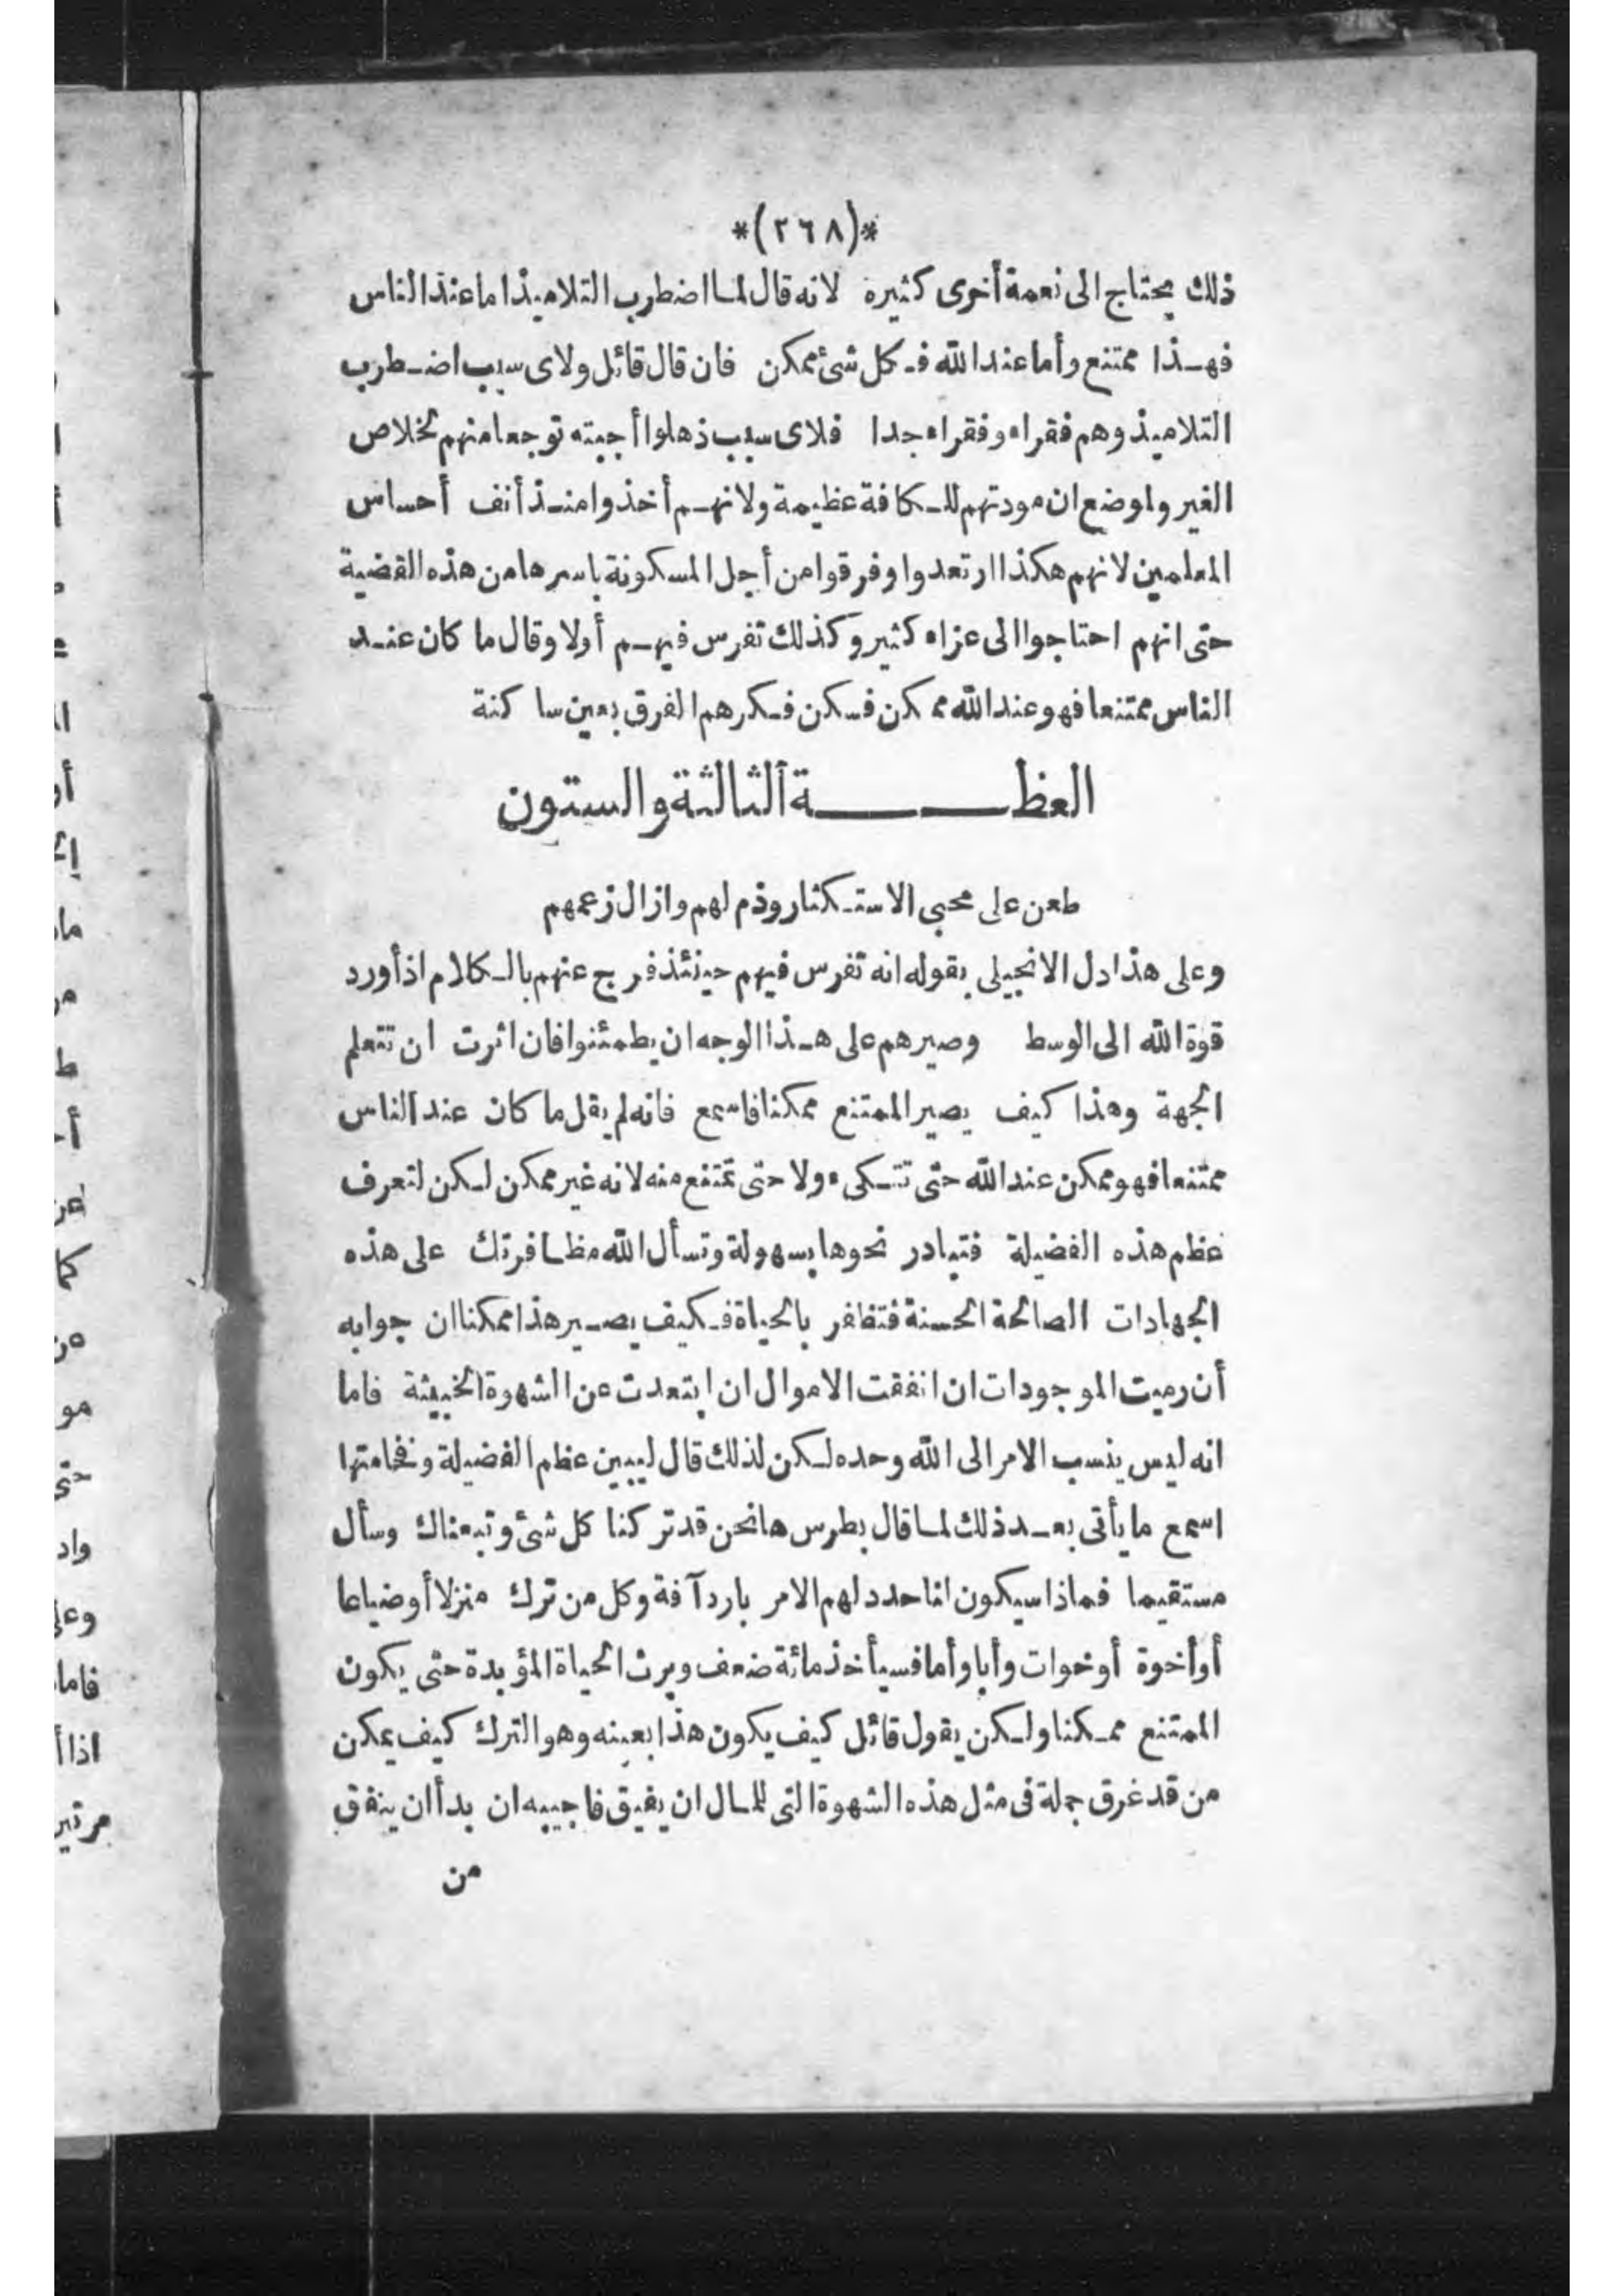 *(٢٦٨)*
ذلك يحتاج الى نعمة أخرى كثيرة لانه قال لما اضطرب التلاميذ اما عند الناس
فهذا ممتنع وأما عند الله فكل شئ ممكن فان قال قائل ولاى سبب اضطرب
التلاميذ وهم فقراء وفقراء جدا فلاى سبب ذهلوا أجبته توجعا منهم لخلاص
الغير ولموضع ان مودتهم للكافة عظيمة ولانهم أخذوا منذ أنف أحساس
المعلمين لانهم هكذا ارتعدوا وفرقوا من أجل المسكونة باسرها من هذه القضية
حتى انهم احتاجوا الى عزاء كثير وكذلك تفرس فيهم أولا وقال ما كان عند
الناس ممتنعا فهو عند الله ممكن فسكن فكرهم الفرق بعين ساكنة
العظة الثالثة والستون
طعن على محبى الاستكثار وذم لهم وازال زعمهم
وعلى هذا دل الانجيلى بقوله انه تفرس فيهم حينئذ فرج عنهم بالكلام اذ أورد
قوة الله الى الوسط وصيرهم على هذا الوجه ان يطمئنوا فان اثرت ان تتعلم
الجهة وهذا كيف يصير الممتنع ممكنا فاسمع فانه لم يقل ما كان عند الناس
ممتنعا فهو ممكن عند الله حتى تتكىء ولا حتى تمتنع منه لانه غير ممكن لكن لتعرف
عظم هذه الفضيلة فتبادر نحوها بسهولة وتسأل الله مظافرتك على هذه
الجهادات الصالحة الحسنة فتظفر بالحياة فكيف يصير هذا ممكنا ان جوابه
أن رميت الموجودات ان انفقت الاموال ان ابتعدت عن الشهوة الخبيثة فاما
انه ليس ينسب الامر الى الله وحده لكن لذلك قال ليبين عظم الفضيلة وفخامتها
اسمع ما يأتى بعد ذلك لما قال بطرس ها نحن قد تركنا كل شئ وتبعناك وسأل
مستقيما فماذا سيكون لنا حدد لهم الامر باردآفة وكل من ترك منزلا أو ضياعا
أو أخوة أو خوات وأبا وأما فسيأخذ مائة ضعف ويرث الحياة المؤبدة حتى يكون
الممتنع ممكنا ولكن يقول قائل كيف يكون هذا بعينه وهو الترك كيف يمكن
من قد غرق جملة فى مثل هذه الشهوة التى للمال ان يفيق فاجيبه ان بدأ ان ينفق
من